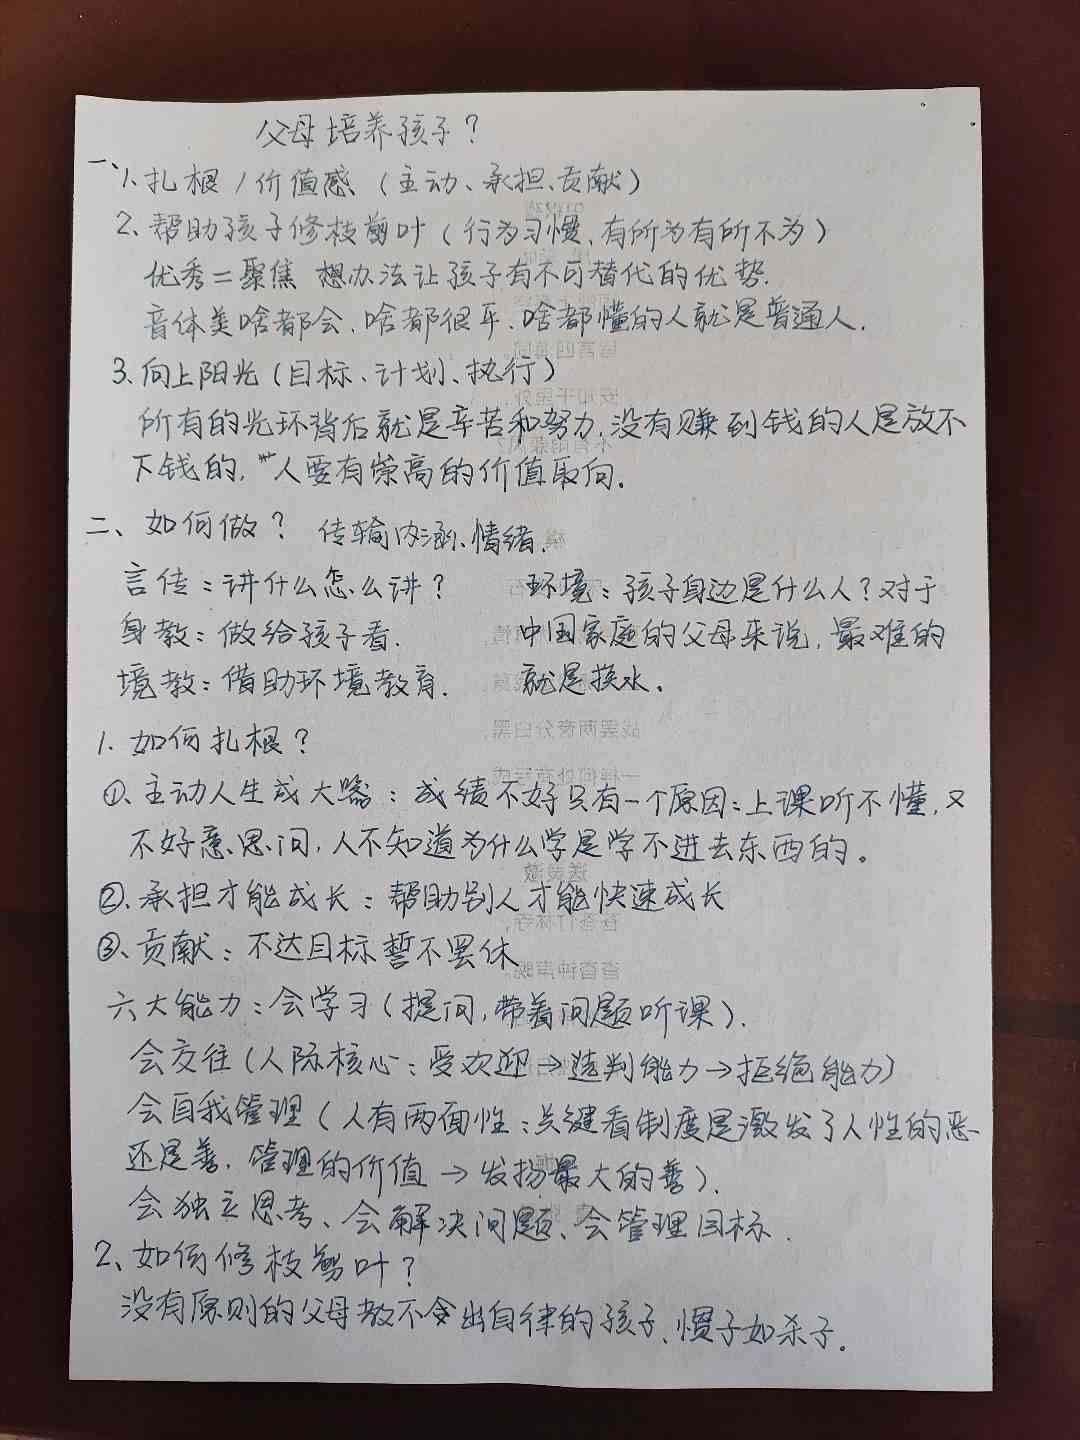 父母培养孩子？
一、1、扎根/价值感（主动、承担、贡献）
2、帮助孩子修枝剪叶（行为习惯、有所为有所不为）
优秀=聚焦 想办法让孩子有不可替代的优势.
音体美啥都会、啥都很平、啥都懂的人就是普通人.
3、向上阳光（目标、计划、执行）
所有的光环背后就是辛苦和努力，没有赚到钱的人是放不
下钱的，人要有崇高的价值取向.
二、如何做？ 传输内涵、情绪.
言传：讲什么怎么讲？
身教：做给孩子看.
境教：借助环境教育.
环境：孩子身边是什么人？对于
中国家庭的父母来说，最难的
就是换水。
1. 如何扎根？
①、主动人生成大器：成绩不好只有一个原因：上课听不懂，又
不好意思问，人不知道为什么学是学不进去东西的。
②、承担才能成长：帮助别人才能快速成长
③、贡献：不达目标誓不罢休
六大能力：会学习（提问，带着问题听课）.
会交往（人际核心：受欢迎→谈判能力→拒绝能力）
会自我管理（人有两面性：关键看制度是激发了人性的恶
还是善，管理的价值→发扬最大的善）.
会独立思考、会解决问题、会管理目标.
2、如何修枝剪叶？
没有原则的父母教不会出自律的孩子、惯子如杀子。